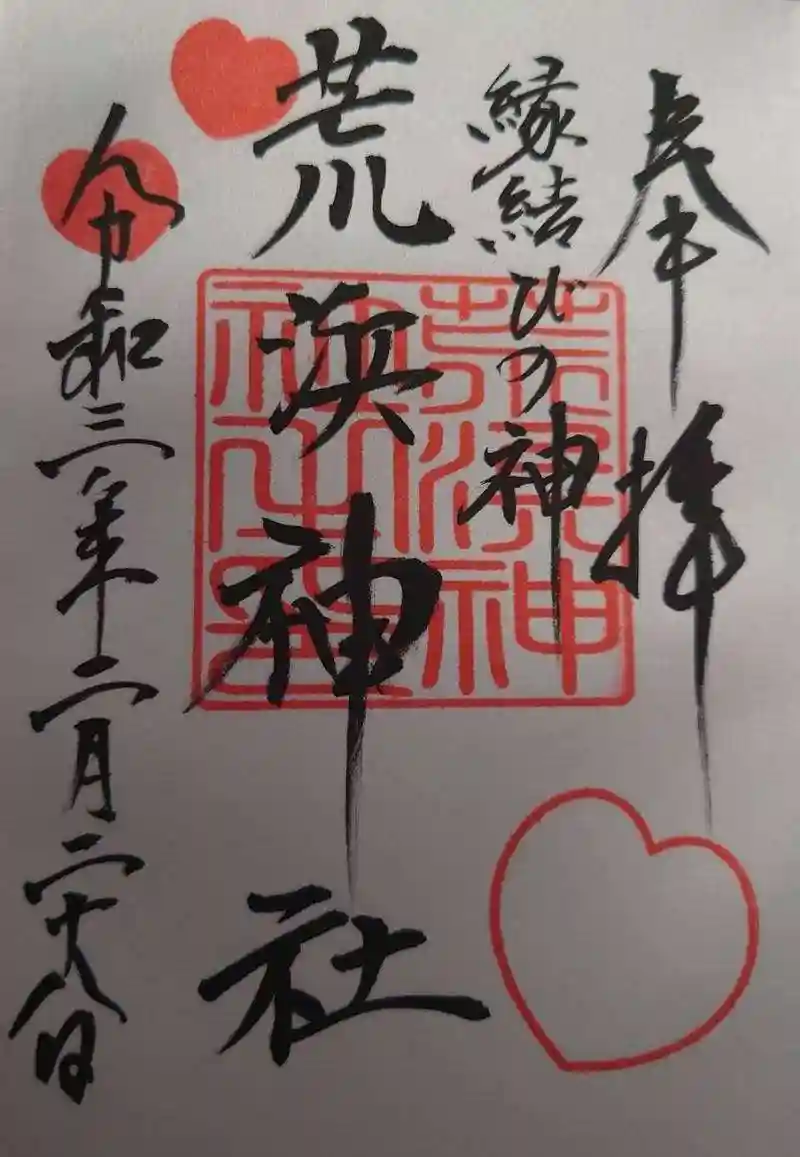 奉拝
縁結びの神
荒浜神社
荒浜神
社之璽
令和三年二月二十八日